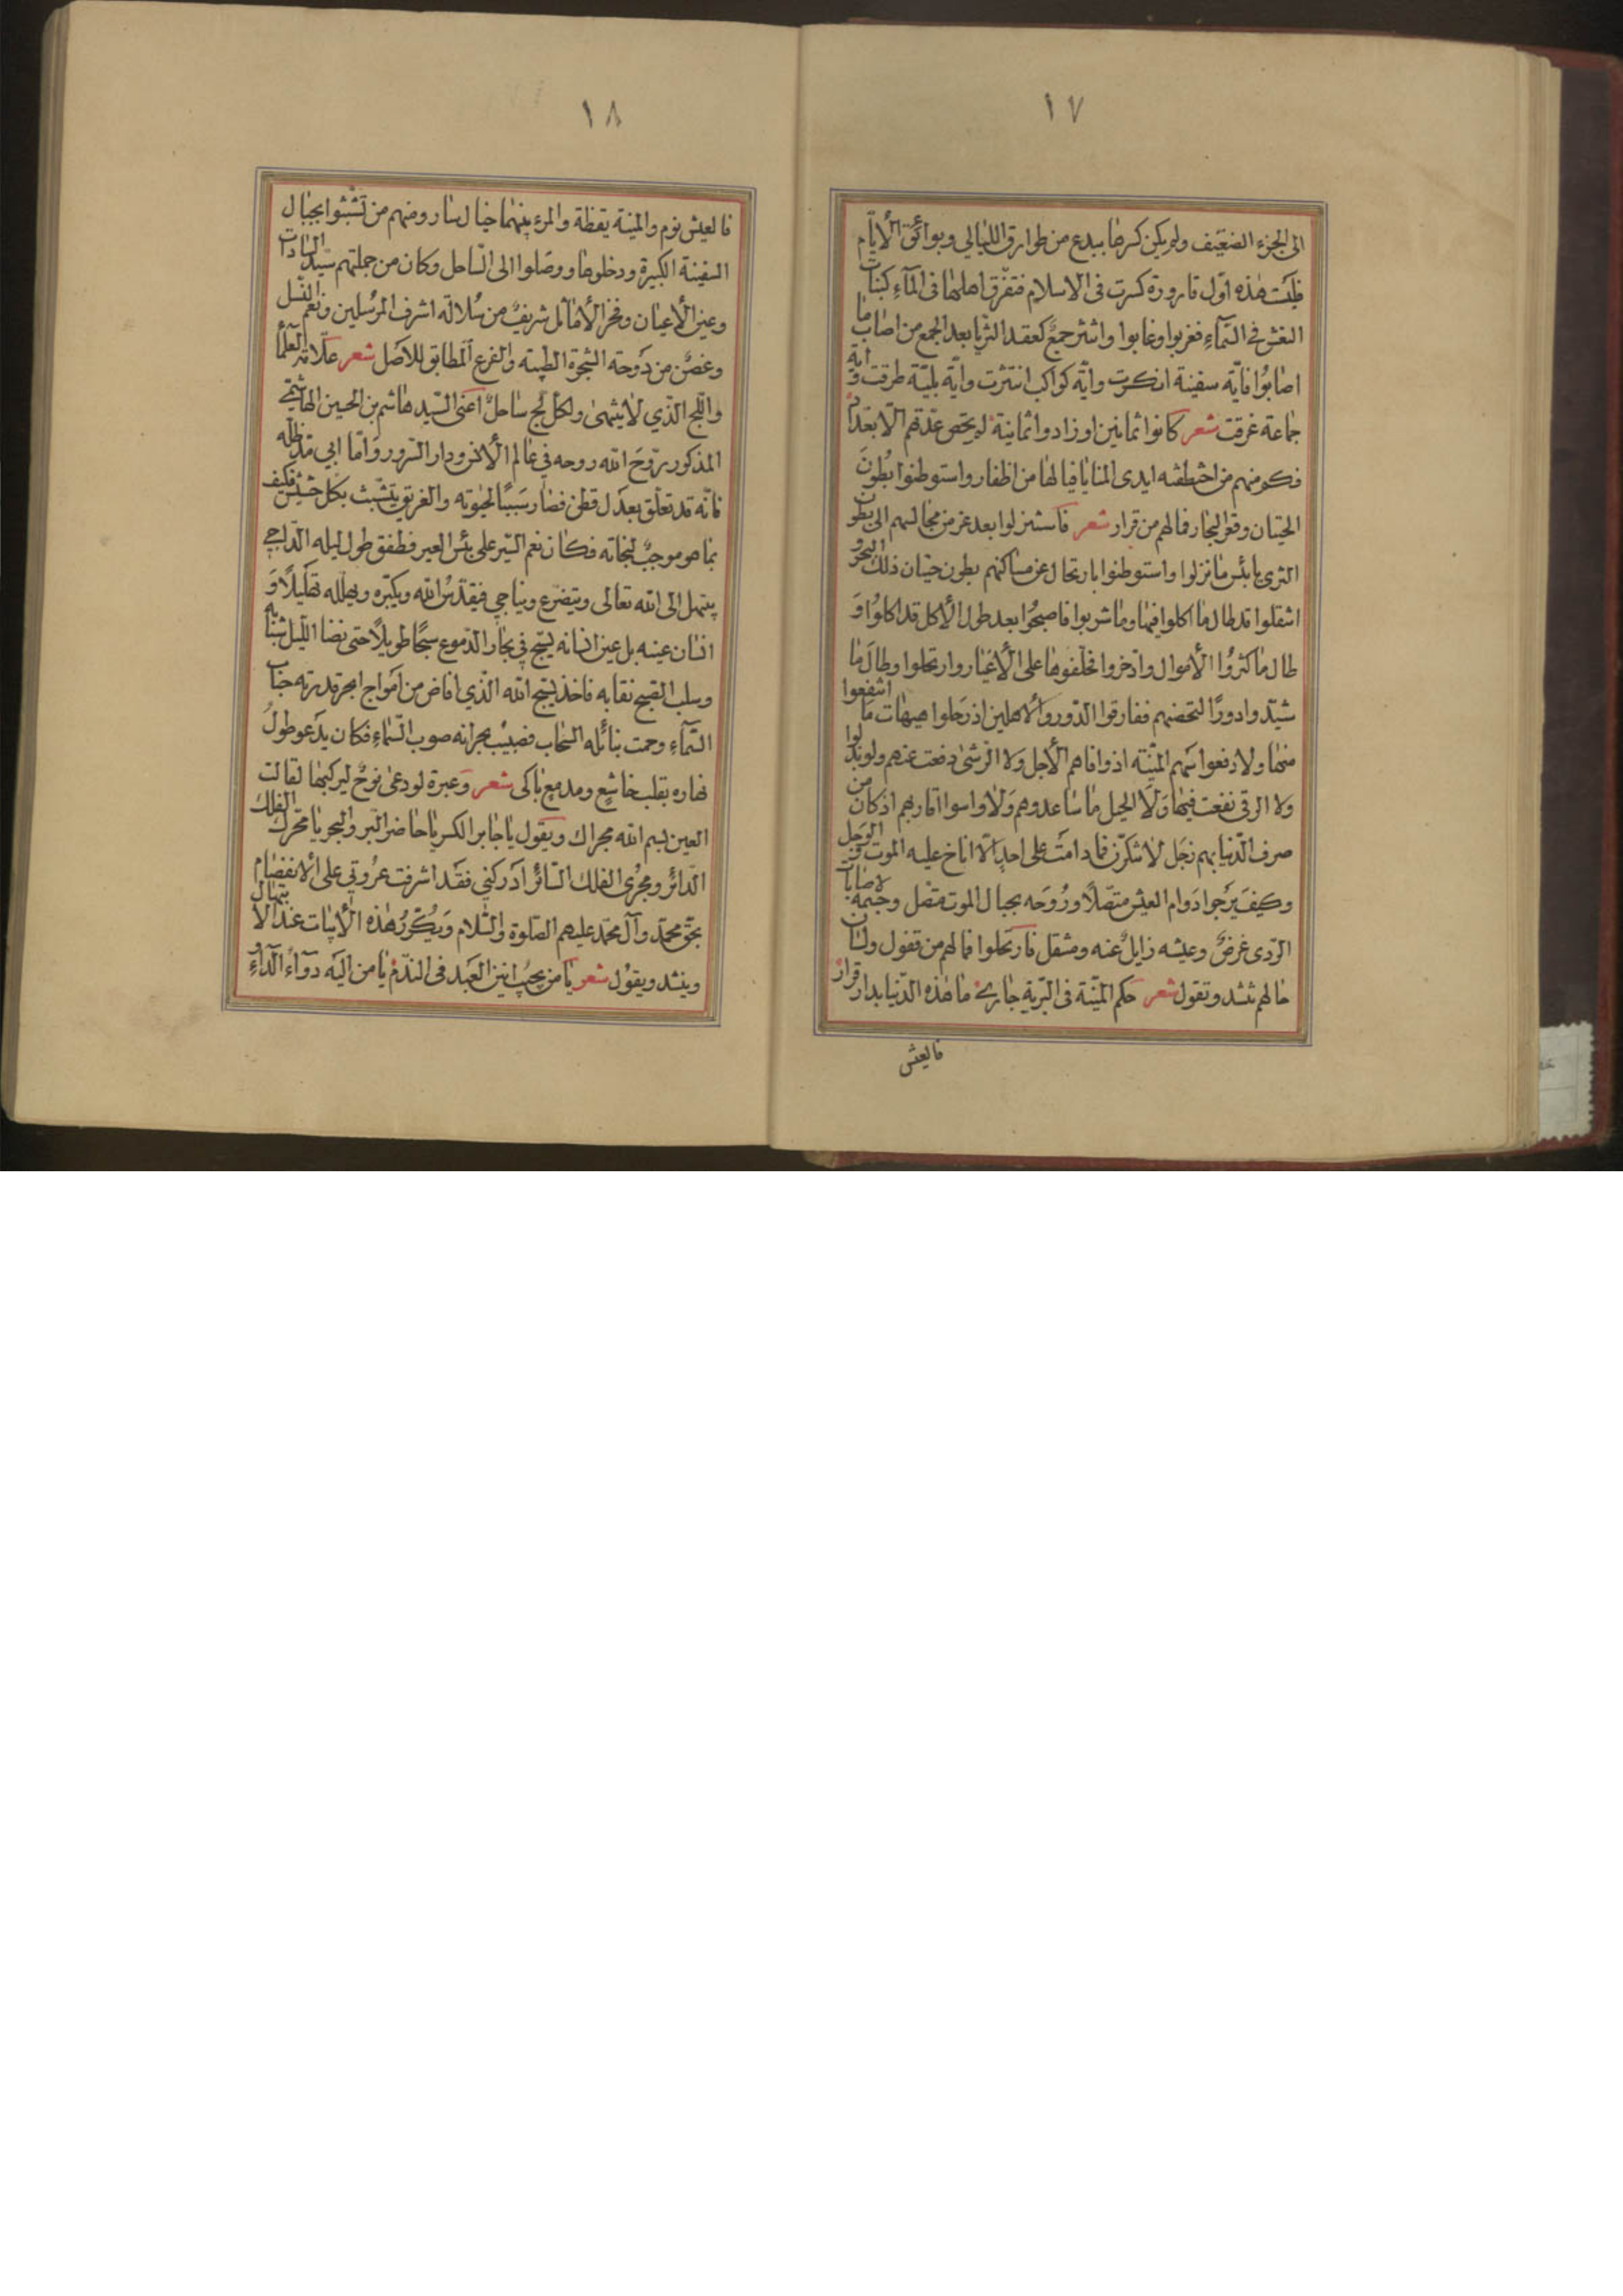 ١٧
الى الجزء الضعيف ولم يكن كسرها ببدع من طوارق الليالي وبوائق الأيام
فليست هذه اوّل قارورة كسرت فى الاسلام فتفرق اهلها فى المآء كبنات
النعش في السّمآء فغربوا وغابوا وانتثر جمع كعقد الثريا بعد الجمع من اصاب ما
اصابوا فايّة سفينة انكسرت وايّة كواكب انتثرت وايّة بليّة طرقت وايّة
جماعة غرقت شعر كانوا ثمانين او زادوا ثمانية لم يحص عدّتهم الّا بتعداد
فكم منهم من اختطفته ايدى المنايا فيالها من اظفار واستوطنوا بطون
الحيتان وقعر البحار فما لهم من قرار شعر فاستنزلوا بعد عز من مجالسهم الى بطون
الثرى يا بئس ما نزلوا واستوطنوا بارتحال عن مساكنهم بطون حيتان ذلك البحر و
انتقلوا قد طال ما اكلوا فيها وما شربوا فاصبحوا بعد طول الأكل قد اكلوا و
طال ما كثروا الأموال وادّخروا فخلّفوها على الأغيار وارتحلوا وطال ما
شيّدوا دورًا لتحضنهم ففارقوا الدّور والأهلين اذ رحلوا هيهات ما انتفعوا
منها ولا دفعوا سهم المنيّة اذ وافاهم الأجل ولا الرّشى دفعت عنهم ولو بذلوا
ولا الرقى نفعت فيها ولا الحيل ما ساعدوهم ولا واسوا اقاربهم اذ كان من
صرف الدّنيا بهم نجل لا تنكرنّ فما دامت على احد الّا اناخ عليه الموت والوجل
وكيف يرجوا دوام العيش متّصلًا وروحه بحبال الموت متصل وجسمه لاصابات
الرّدى غرض وعيشه زايل عنه ومنتقل فارتحلوا فما لهم من قفول ولسان
حالهم تنشد وتقول شعر حكم المنيّة فى البريّة جارى ما هذه الدّنيا بدار قرار
فالعيش
١٨
فالعيش نوم والمنيّة يقظة والمرء بينهما خيال سار ومنهم من تشبّثوا بحبال
السفينة الكبيرة ودخلوها ووصلوا الى السّاحل وكان من جملتهم سيّد السّادات
وعين الأعيان وفخر الأماثل شريف من سلالة اشرف المرسلين ونعم النّسل
وغصن من دوحته الشجرة الطيّبة والفرع المطابق للاصل شعر علّامة العلما
واللّج الّذي لا ينتهى ولكل لج ساحل اعنى السّيد هاشم بن الحسين الهاشمي
المذكور روّح الله روحه في عالم الأنس ودار السّرور وامّا ابي مدّ ظلّه
فانّه قد تعلّق بعدل قطن فصار سببًا لحيوته والغريق يتشبّث بكل حشيش فكيف
بما هو موجب لنجاته فكان نعم السّير على بئس العير فطفق طول ليله الدّاجي
يبتهل الى الله تعالى ويتضرّع ويناجي فيقدّس الله ويكبّره ويهلّله تهليلًا و
انسان عينه بل عين انسانه يسبح في بحار الدّموع سبحًا طويلًا حتى نضا اللّيل ثيابه
وسلب الصبح نقابه فاخذ يسبّح الله الّذي افاض من امواج ابحر قدرته حباب
السّمآء وهمت بنائله السّحاب فصبّت بجرانه صوب السّماء فكان يدعو طول
نهاره بقلب خاشع ومدمع باكى شعر وعبرة لو دعى نوح ليركبها لقالت
العين بسم الله مجراك ويقول يا جابر الكسر يا حاضر البر والبحر يا محرّك الفلك
الدّائر ومجرى الفلك السّائر ادركني فقد اشرفت عروتي على الانفصام
بحق محمّد وآل محمّد عليهم الصّلوة والسّلام ويكرّر هذه الأبيات عند الابتهال
وينشد ويقول شعر يا من يحبّ انين العبد فى الندم يا من اليه دوآء الدّآء و